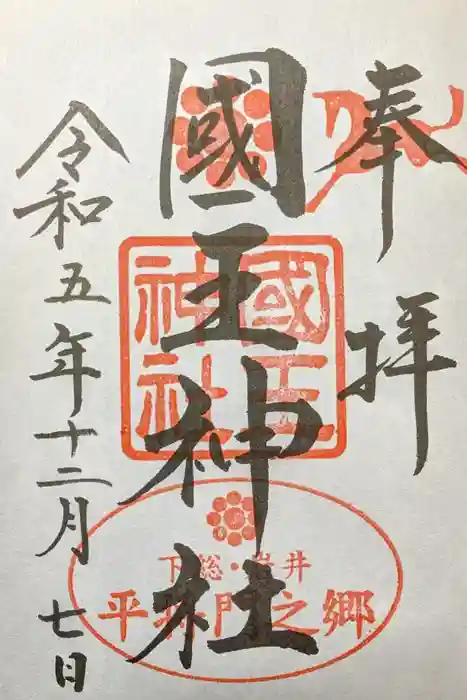 奉拝
國王神社
國王神社
下総・岩井
平将門之郷
令和五年十二月七日